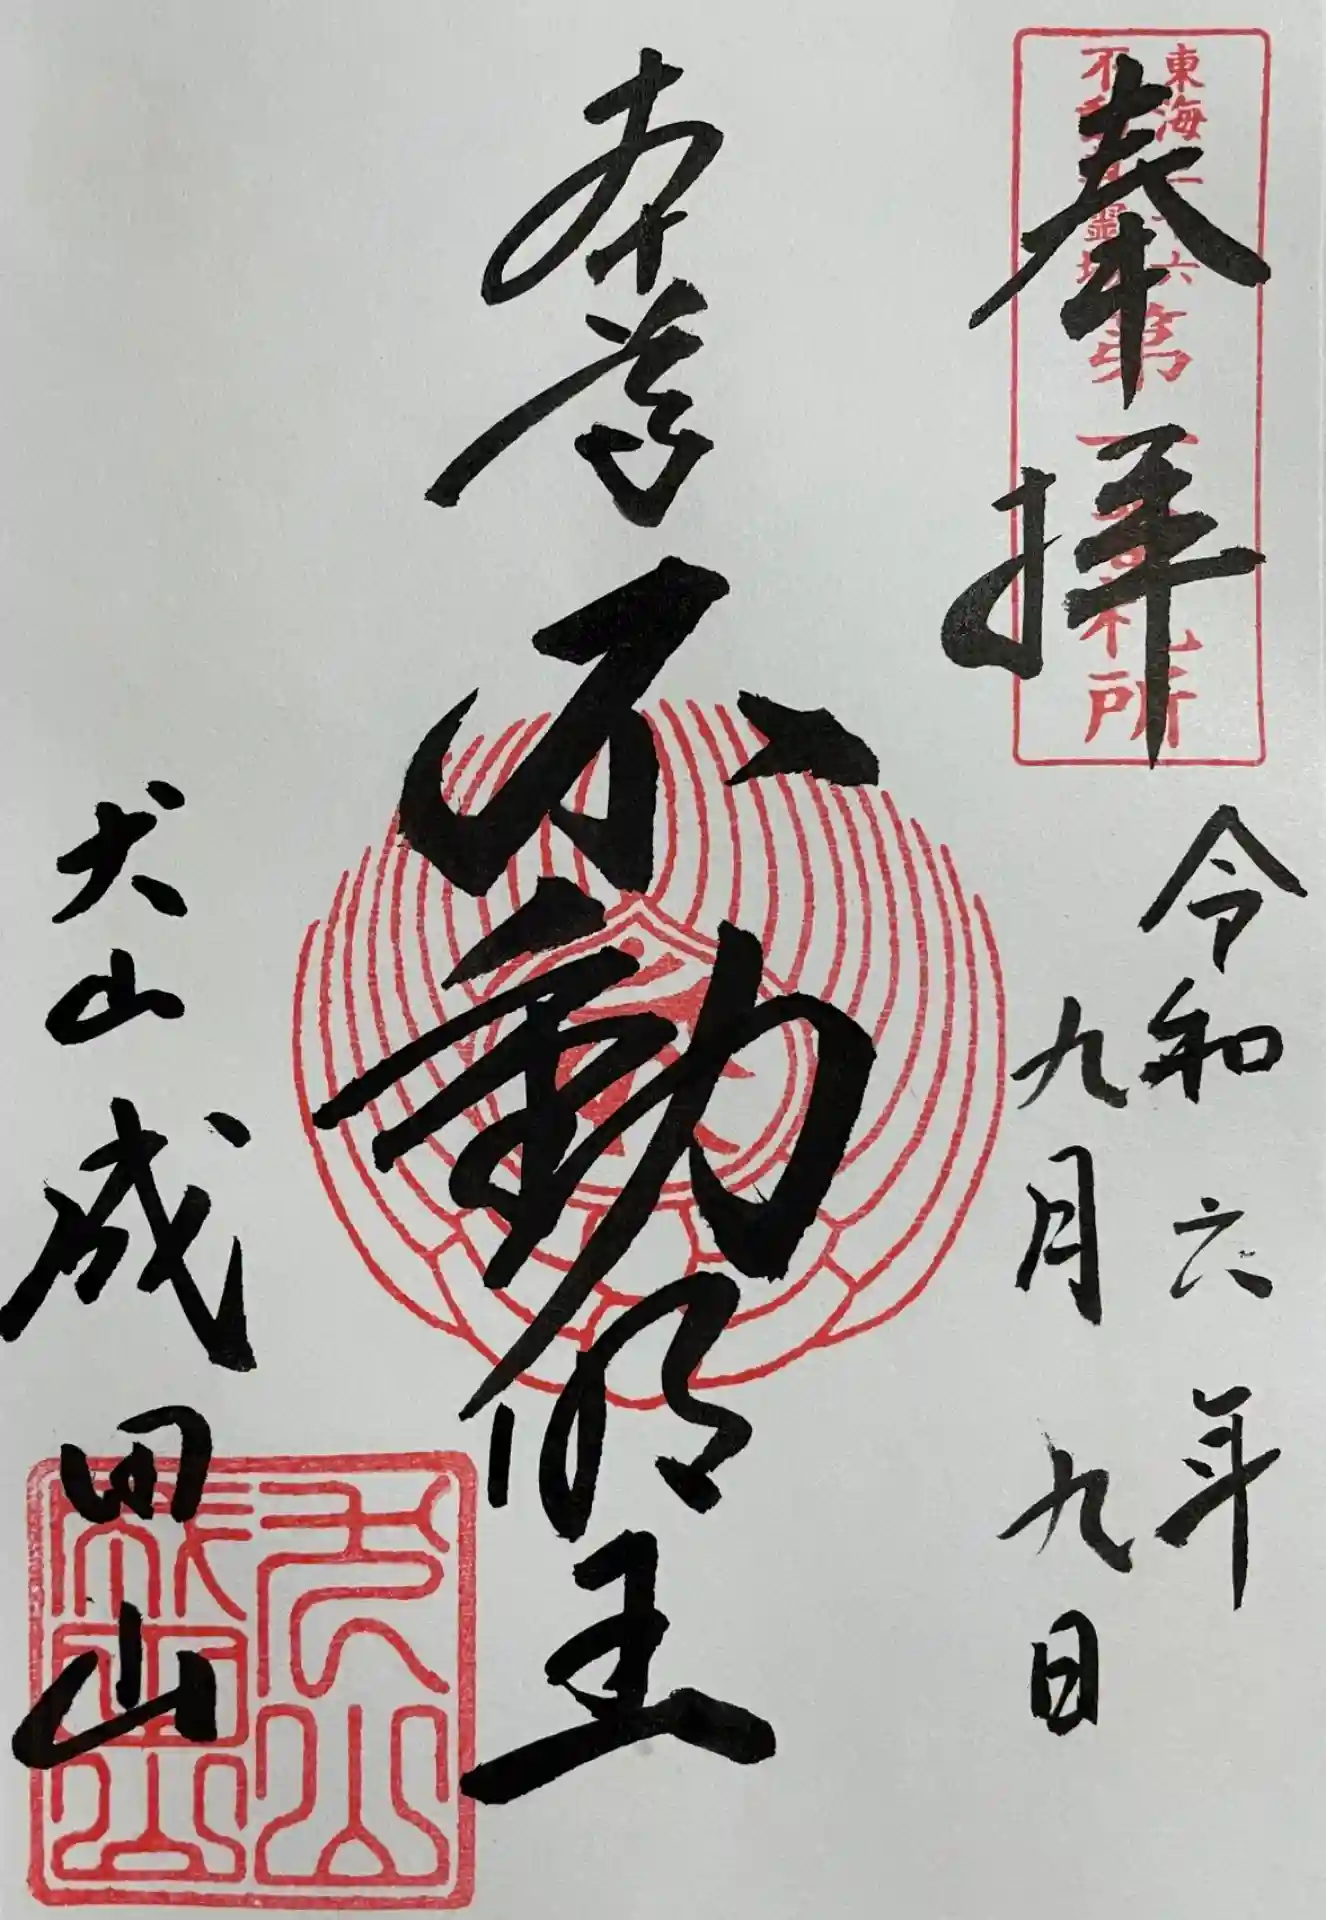 奉拝
東海三十六
不動尊霊場
第一番札所
令和六年
九月九日
本尊
不動明王
犬山成田山
犬山
成田山